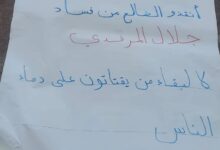 أنقذو الضالع من فساد
جلال المرفدي
كا لبقاء من يقتاتون على دماء
الناس